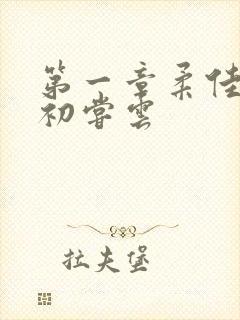 第一章柔佳
初尝云
拉夫堡